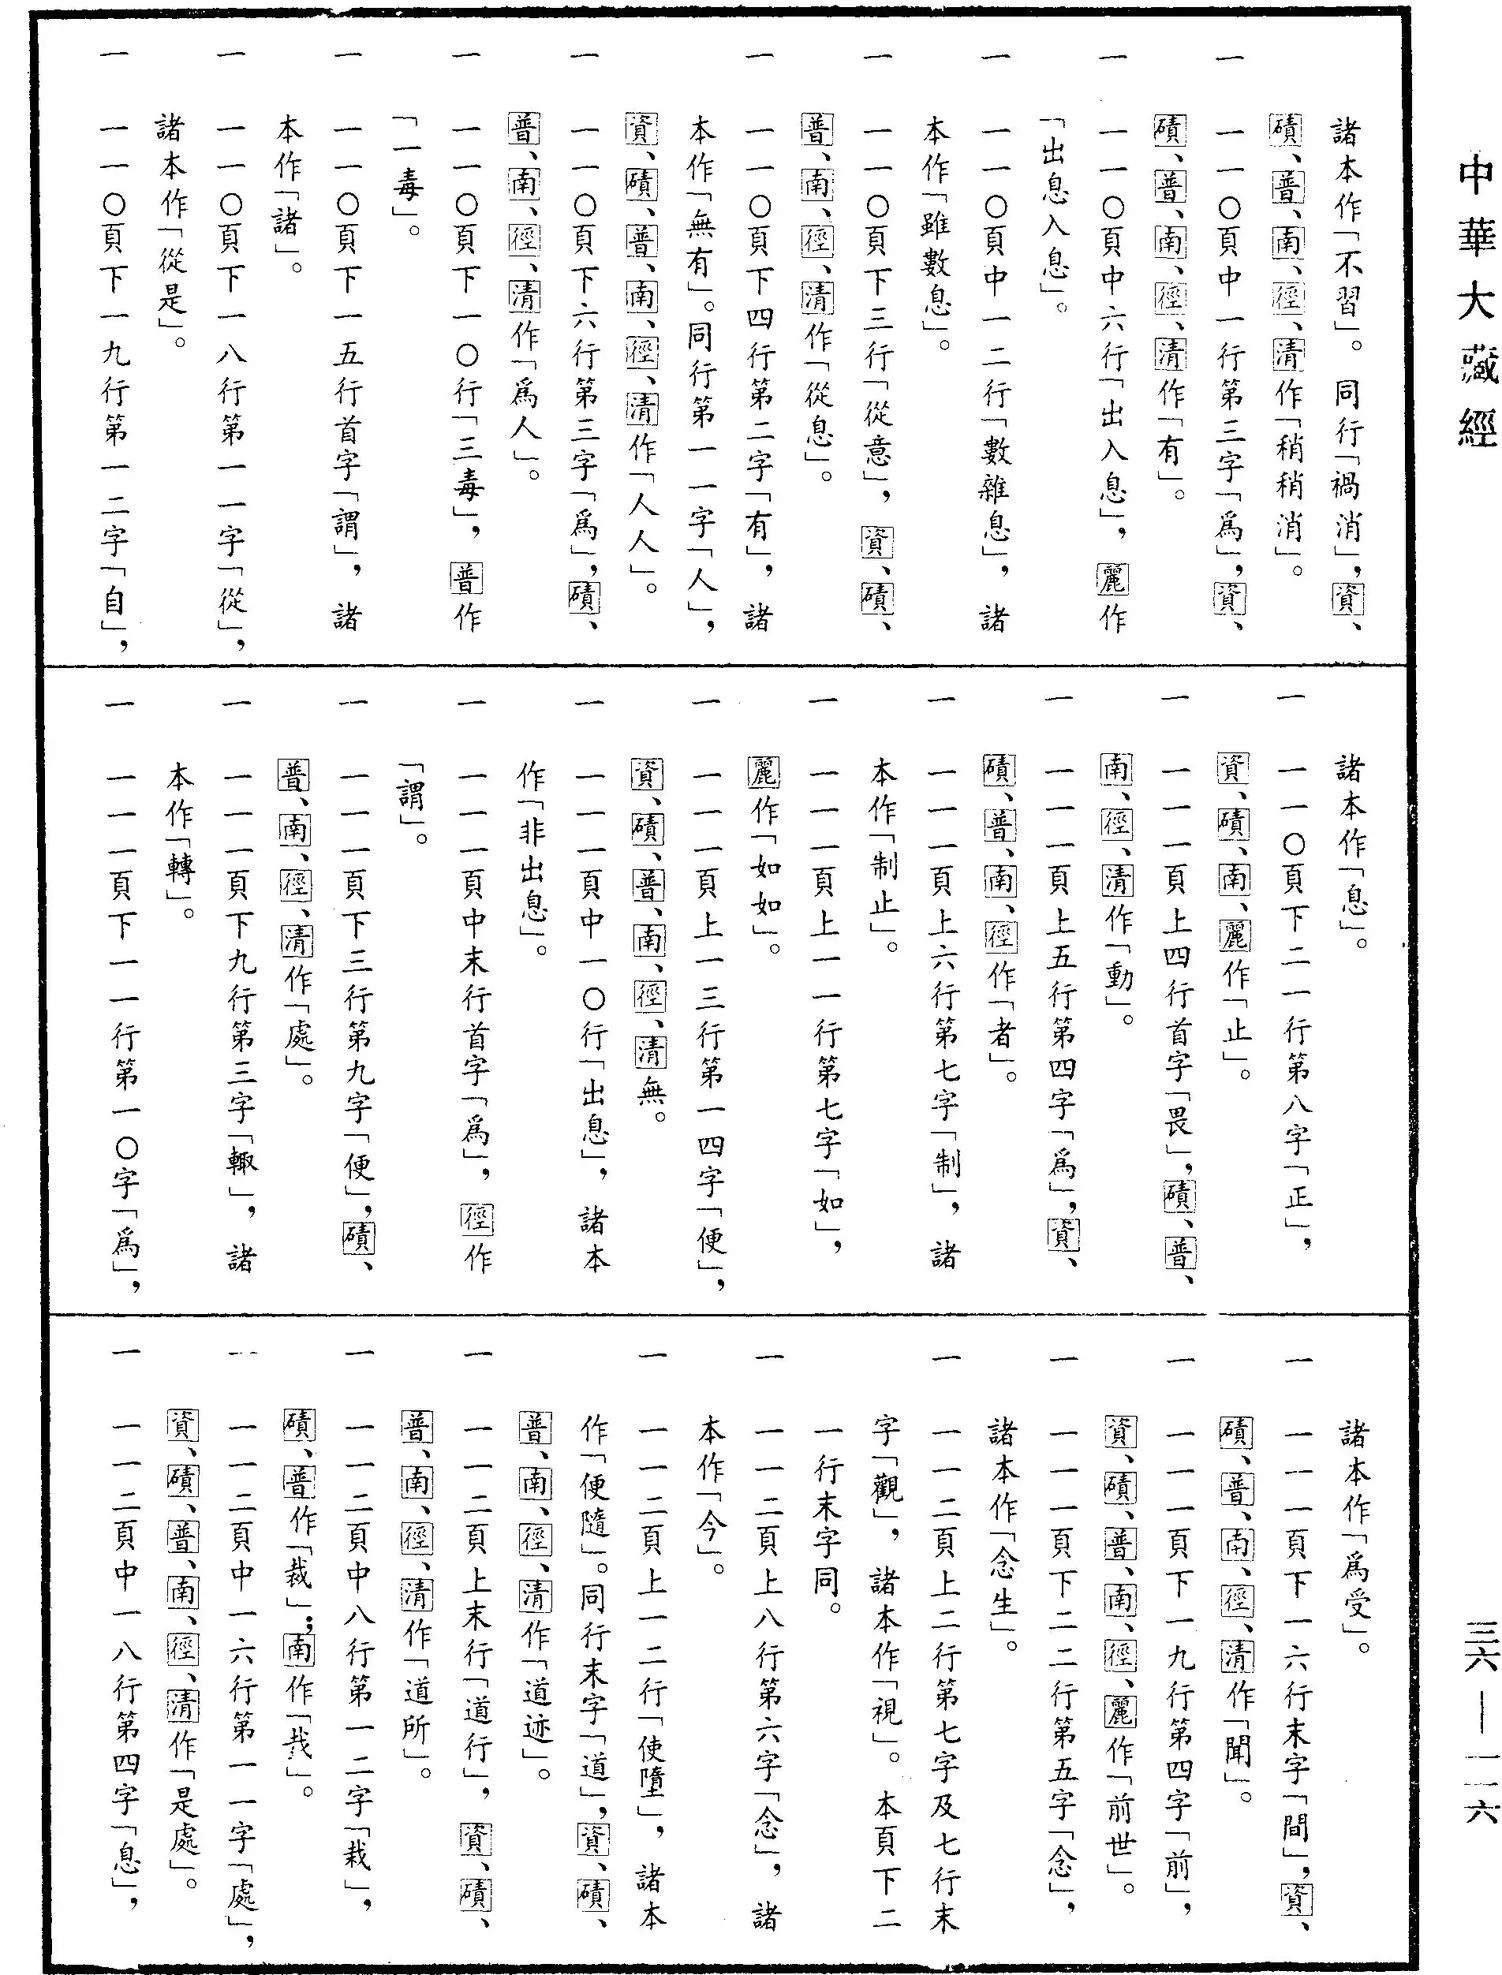 中華大藏經
三六—一一六
諸本作「不習」。同行「禍消」，資、
磧、普、南、徑、清作「稍稍消」。
一 一一〇頁中一行第三字「爲」，資、
磧、普、南、徑、清作「有」。
一 一一〇頁中六行「出入息」，麗作
「出息入息」。
一 一一〇頁中一二行「數雜息」，諸
本作「雖數息」。
一 一一〇頁下三行「從意」，資、磧、
普、南、徑、清作「從息」。
一 一一〇頁下四行第二字「有」，諸
本作「無有」。同行第一一字「人」，
資、磧、普、南、徑、清作「人人」。
一 一一〇頁下六行第三字「爲」，磧、
普、南、徑、清作「爲人」。
一 一一〇頁下一〇行「三毒」，普作
「一毒」。
一 一一〇頁下一五行首字「謂」，諸
本作「諸」。
一 一一〇頁下一八行第一一字「從」，
諸本作「從是」。
一 一一〇頁下一九行第一二字「自」，
諸本作「息」。
一 一一〇頁下二一行第八字「正」，
資、磧、南、麗作「止」。
一 一一一頁上四行首字「畏」，磧、普、
南、徑、清作「動」。
一 一一一頁上五行第四字「爲」，資、
磧、普、南、徑作「者」。
一 一一一頁上六行第七字「制」，諸
本作「制止」。
一 一一一頁上一一行第七字「如」，
麗作「如如」。
一 一一一頁上一三行第一四字「便」，
資、磧、普、南、徑、清無。
一 一一一頁中一〇行「出息」，諸本
作「非出息」。
一 一一一頁中末行首字「爲」，徑作
「謂」。
一 一一一頁下三行第九字「便」，磧、
普、南、徑、清作「處」。
一 一一一頁下九行第三字「輙」，諸
本作「轉」。
一 一一一頁下一一行第一〇字「爲」，
諸本作「爲受」。
一 一一一頁下一六行末字「間」，資、
磧、普、南、徑、清作「聞」。
一 一一一頁下一九行第四字「前」，
資、磧、普、南、徑、麗作「前世」。
一 一一一頁下二二行第五字「念」，
諸本作「念生」。
一 一一二頁上二行第七字及七行末
字「觀」，諸本作「視」。本頁下二
一行末字同。
一 一一二頁上八行第六字「念」，諸
本作「今」。
一 一一二頁上一二行「使墮」，諸本
作「便隨」。同行末字「道」，資、磧、
普、南、徑、清作「道迹」。
一 一一二頁上末行「道行」，資、磧、
普、南、徑、清作「道所」。
一 一一二頁中八行第一二字「栽」，
磧、普作「裁」；南作「哉」。
一 一一二頁中一六行第一一字「處」，
資、磧、普、南、徑、清作「是處」。
一 一一二頁中一八行第四字「息」，